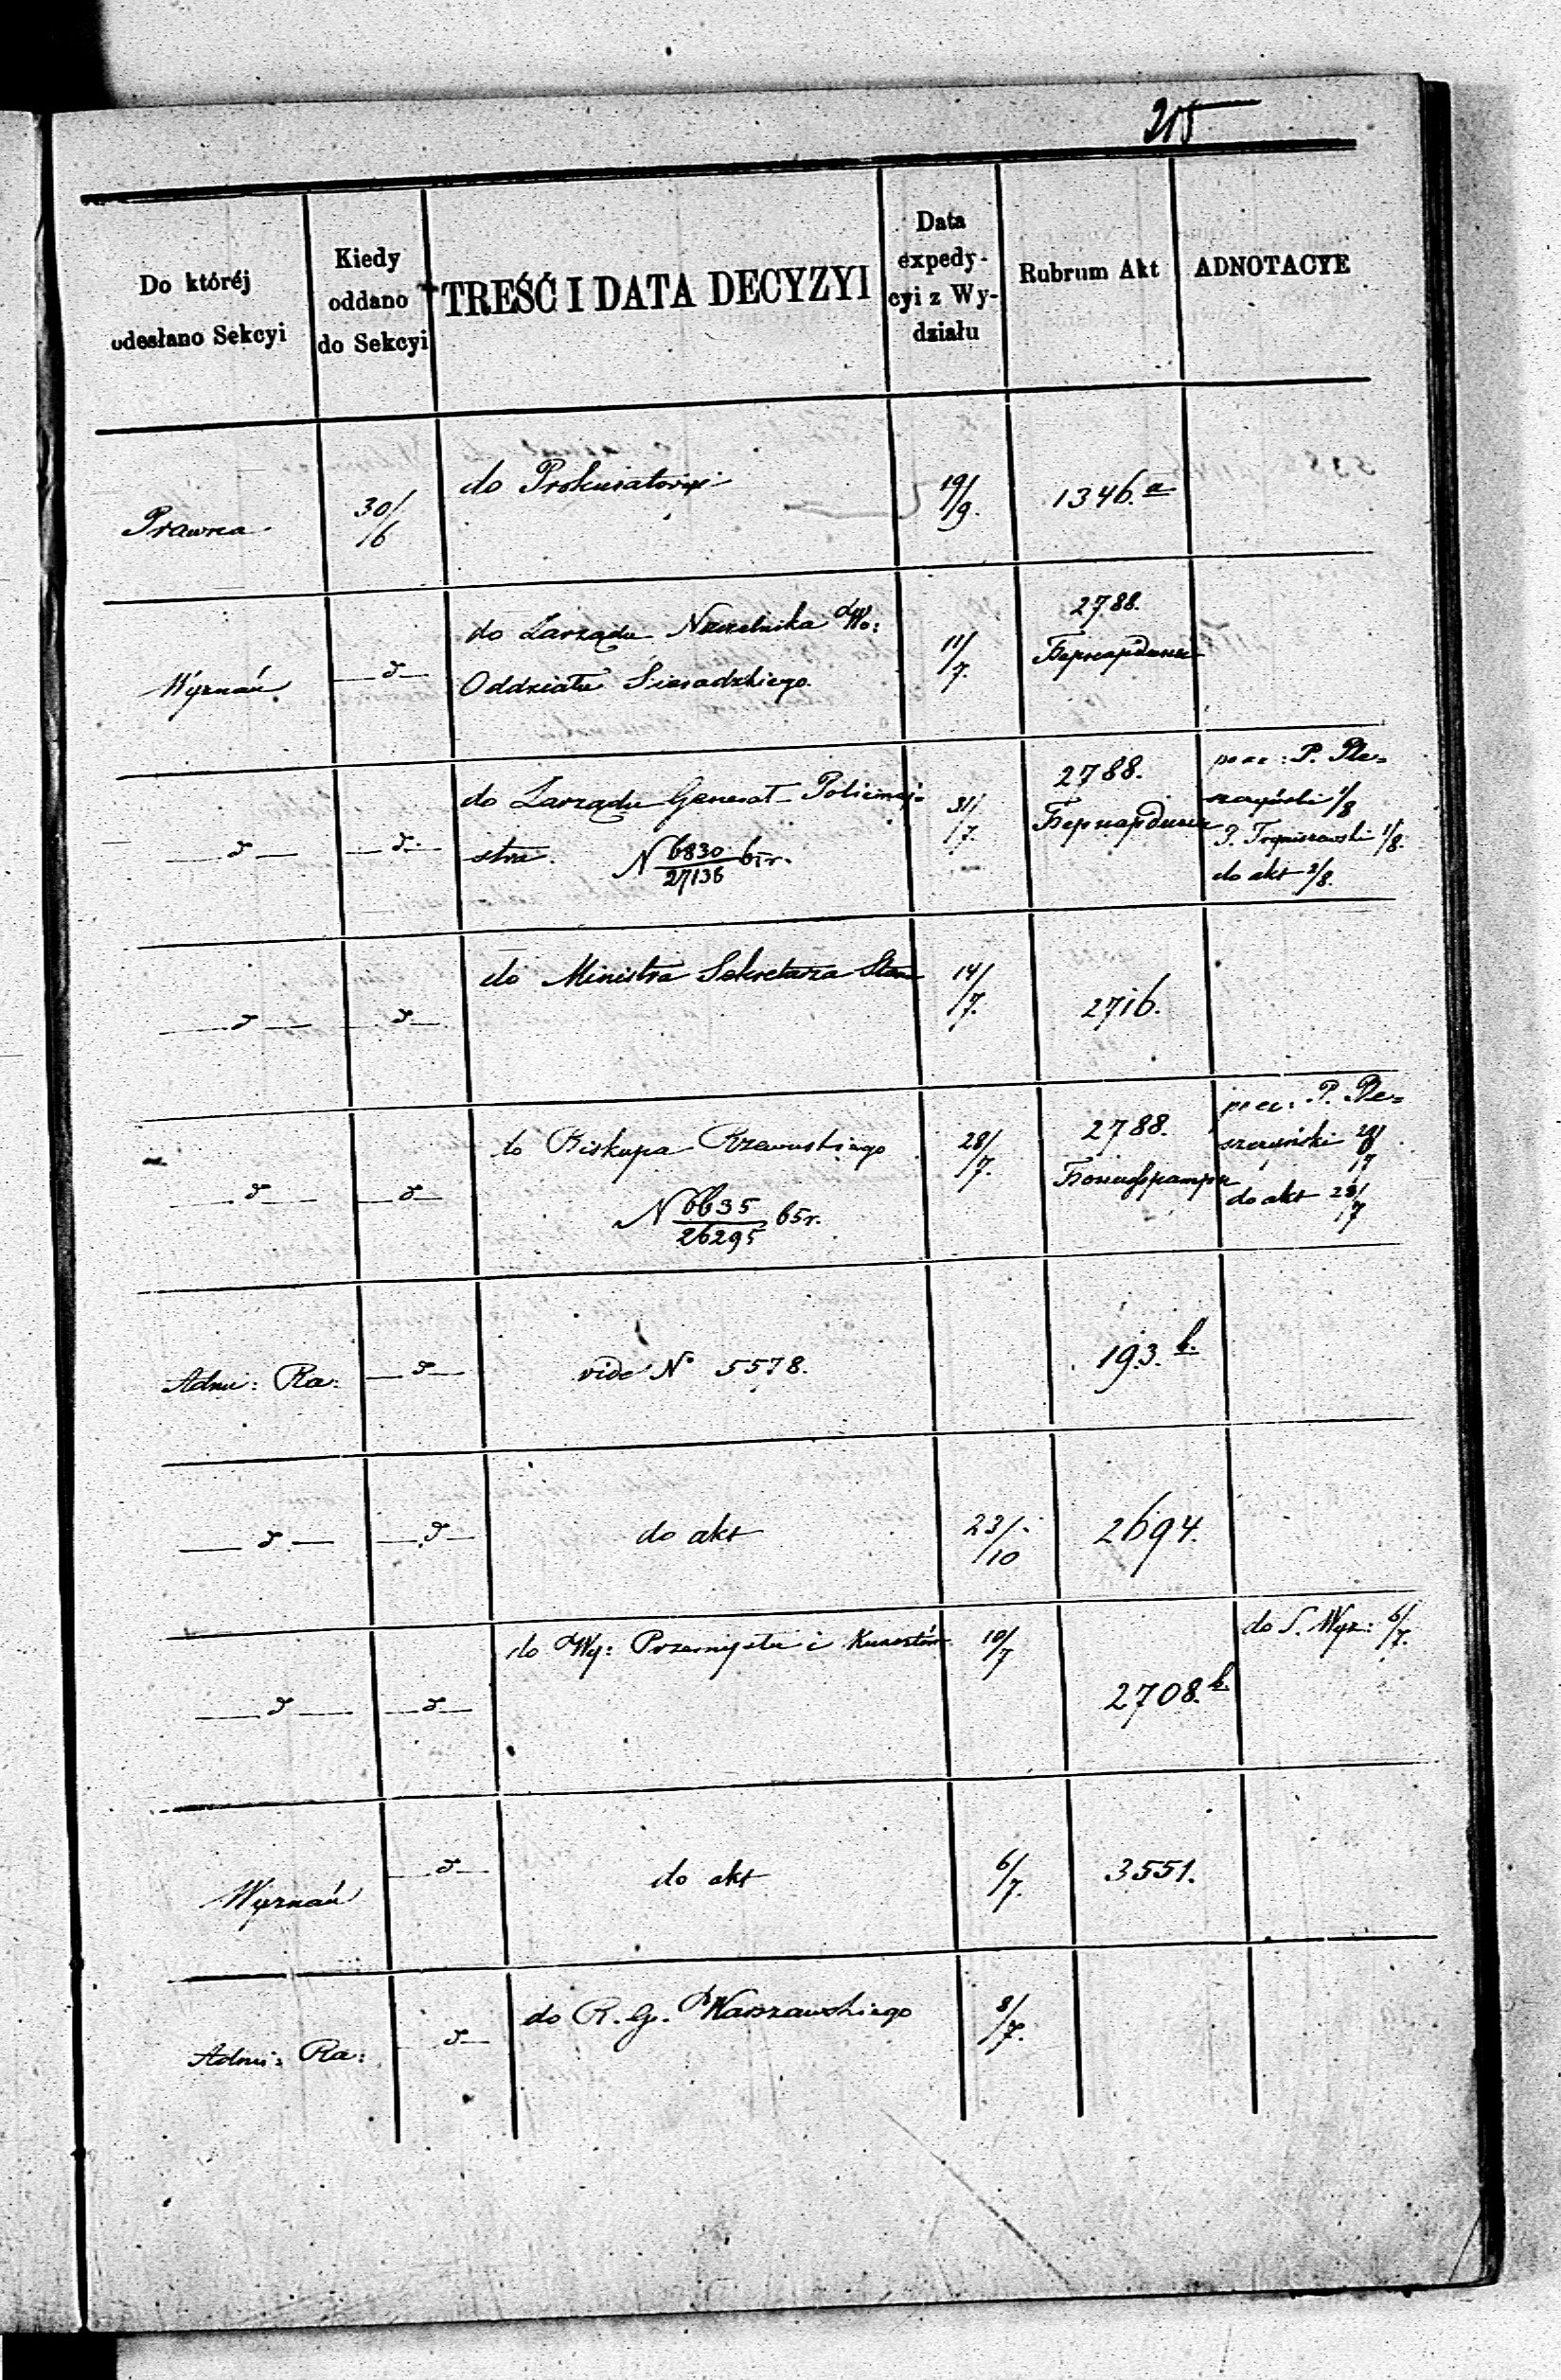 215
Do któréj
odesłano Sekcyi
Kiedy
oddano
do Sekcyi
TREŚĆ I DATA DECYZYI
Data
expedy-
cyi z Wy-
działu
Rubrum Akt
ADNOTACYE
Prawna
30/6
do Prokuratoryi
19/9.
1346.a
Wyznań
d
do Zarządu Naczelnika Wo:
Oddziału Sieradzkiego
11/7.
2788.
Бернардини
d
d
do Zarządu Generał-Policmaj-
stra. N 6830/27136 65r.
31/7.
2788.
Бернардини
P. Ple=
szczyński 1/8
1/8.
do akt 2/8.
d
d
do Ministra Sekretarza Stanu
14/7.
2716.
d
d
do Biskupa Rzewuskiego
N 6635/26295 65r.
28/7.
2788.
P. Ple=
szczyński
do akt 28/7
Admi: Ra:
d
vide No 5578.
193.b.
d
d
do akt
23/10
2694.
d
d
do Wy: Przemysłu i Kunsztów
10/7
2708.b
do S. Wyz: 6/7.
Wyznań
d
do akt
6/7.
3551.
Admi: Ra:
d
do R. G. Warszawskiego
8/7.